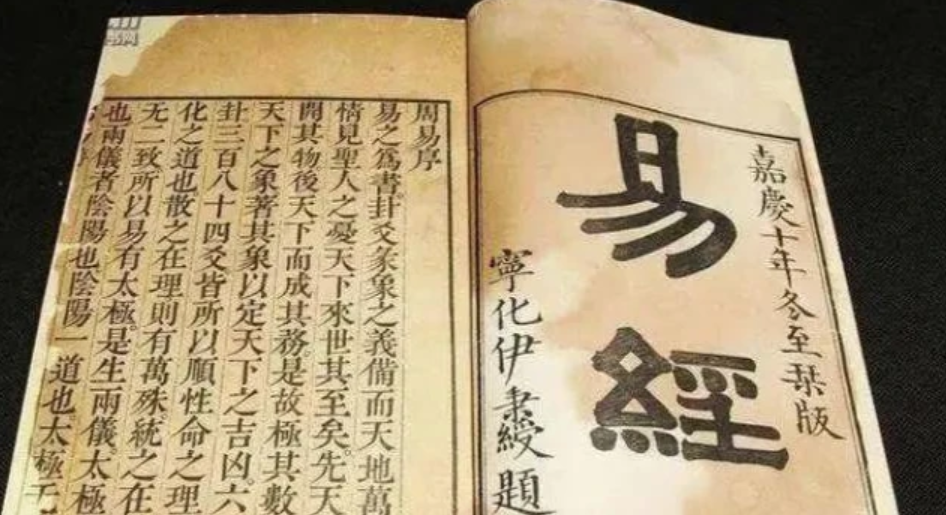 嘉慶十年冬至栞版
易經
寧化伊秉綬題
周易序
易之爲書卦爻彖象之義備而天地萬
情見聖人之憂天下來世其至矣。先天
開其物後天下而成其務。是故極其數
天下之象著其象以定天下之吉凶。六
卦三百八十四爻皆所以順性命之理
化之道也散之在理則有萬殊。統之在
无二致所以易有太極。是生兩儀。太極
也兩儀者陰陽也陰陽一道也太極无